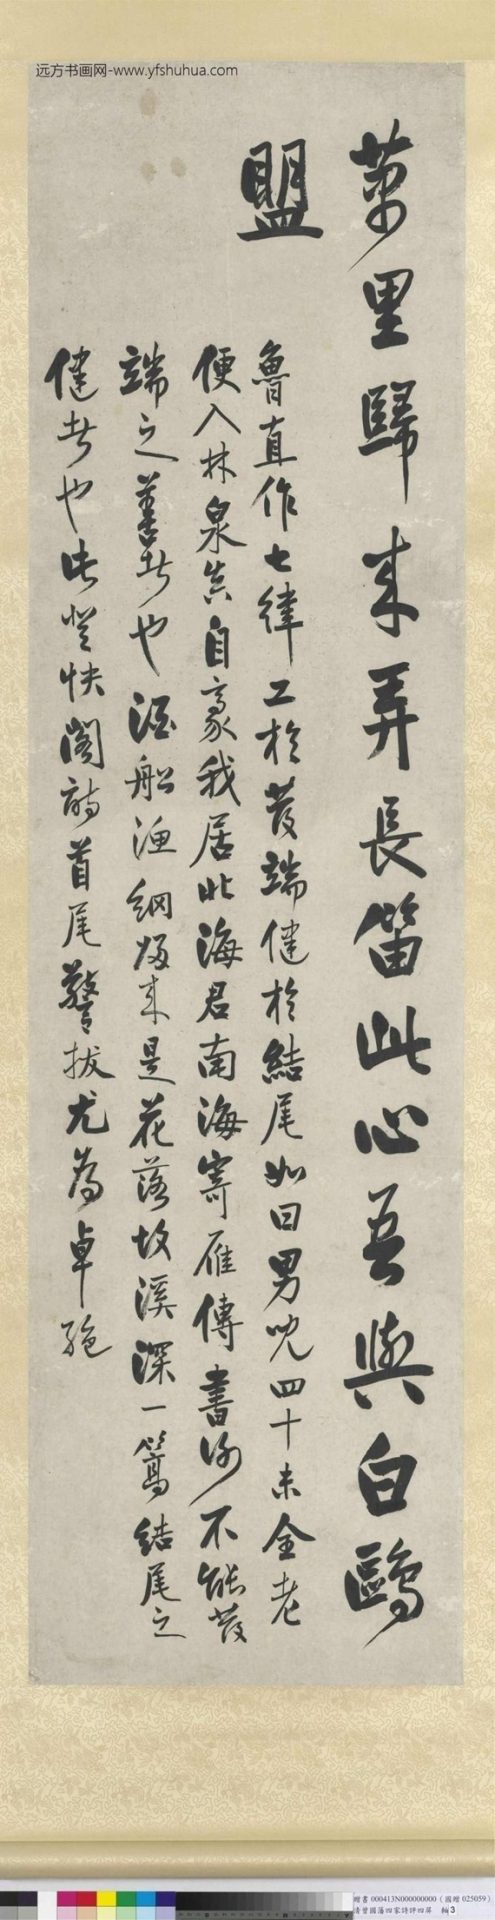 远方书画网-www.yfshuhua.com
萬里歸來弄長笛此心吾與白鷗
盟
魯直作七律工於發端健於結尾如曰男兒四十未全老
便入林泉真自豪我居北海君南海寄雁傳書謝不能發
端之善者也酒船漁網歸來是花落故溪深一篙結尾之
健者也此登快閣詩首尾警拔尤為卓絕
贈書 000413N000000000 (國贈 025059)
清曾國藩四家詩評四屏 軸3